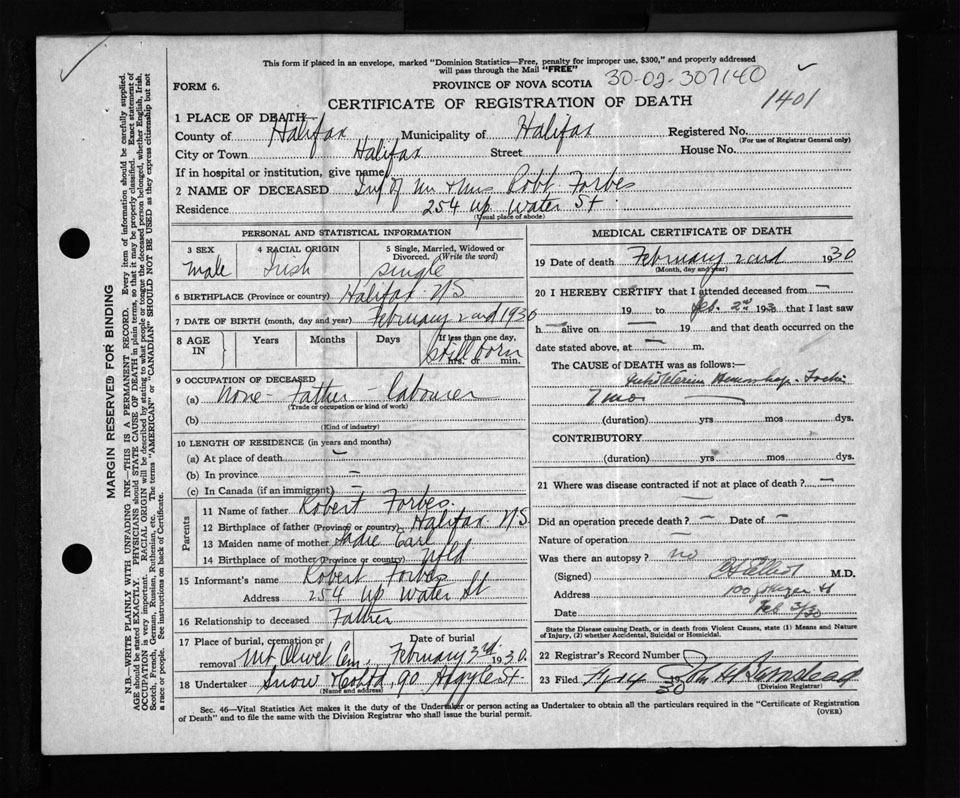 This form if placed in an envelope, marked "Dominion Statistics—Free, penalty for improper use, $300," and properly addressed
will pass through the Mail "FREE"
30-02-307140
FORM 6.
PROVINCE OF NOVA SCOTIA
CERTIFICATE OF REGISTRATION OF DEATH
1401
1 PLACE OF DEATH—
County of Halifax Municipality of Halifax Registered No.
(For use of Registrar General only)
City or Town Halifax Street House No.
If in hospital or institution, give name
2 NAME OF DECEASED Inf of Mr & Mrs Robt Forbes
Residence 254 Up Water St
(Usual place of abode)
PERSONAL AND STATISTICAL INFORMATION
3 SEX 4 RACIAL ORIGIN 5 Single, Married, Widowed or
Divorced. (Write the word)
Male Irish Single
6 BIRTHPLACE (Province or country) Halifax NS
7 DATE OF BIRTH (month, day and year) February 2nd 1930
8 AGE IN Years Months Days If less than one day,
Stillborn
hrs. or min.
9 OCCUPATION OF DECEASED
(a) None - Father - Labourer
(Trade or occupation or kind of work)
(b)
(Kind of industry)
10 LENGTH OF RESIDENCE (in years and months)
(a) At place of death
(b) In province —
(c) In Canada (if an immigrant) —
Parents
11 Name of father Robert Forbes.
12 Birthplace of father (Province or country) Halifax NS
13 Maiden name of mother Sadie Earl
14 Birthplace of mother (Province or country) Nfld
15 Informant's name Robert Forbes
Address 254 Up Water St
16 Relationship to deceased Father
17 Place of burial, cremation or
removal Mt Olivet Cem. Date of burial
February 3rd 1930.
18 Undertaker Snow & Co Ltd 90 Argyle St.
(Name and address)
MEDICAL CERTIFICATE OF DEATH
19 Date of death February 2nd 1930
(Month, day and year)
20 I HEREBY CERTIFY that I attended deceased from —
19 to Feb. 2nd 1930 that I last saw
h — alive on — 19 and that death occurred on the
date stated above, at — m.
The CAUSE OF DEATH was as follows:—
7 mo
(duration) yrs mos dys.
CONTRIBUTORY
(duration) yrs mos dys.
21 Where was disease contracted if not at place of death? —
Did an operation precede death? — Date of —
Nature of operation —
Was there an autopsy? no
(Signed) M.D.
Address 100 St
Date Feb 3/30
State the Disease causing Death, or in death from Violent Causes, state (1) Means and Nature
of Injury, (2) whether Accidental, Suicidal or Homicidal.
22 Registrar's Record Number
23 Filed
(Division Registrar)
Sec. 46—Vital Statistics Act makes it the duty of the Undertaker or person acting as Undertaker to obtain all the particulars required in the "Certificate of Registration
of Death" and to file the same with the Division Registrar who shall issue the burial permit.
(OVER)
MARGIN RESERVED FOR BINDING
N.B.—WRITE PLAINLY WITH UNFADING INK—THIS IS A PERMANENT RECORD. Every item of information should be carefully supplied.
AGE should be stated EXACTLY. PHYSICIANS should STATE CAUSE OF DEATH in plain terms, so that it may be properly classified. Exact statement of
OCCUPATION is very important. RACIAL ORIGIN will be described by stating to what people or tongue the deceased person belonged, whether English, Irish,
Scotch, French, German, Russian, Ruthenian, etc. The terms "AMERICAN" or "CANADIAN" SHOULD NOT BE USED as they express citizenship but not
a race or people. See instructions on back of Certificate.